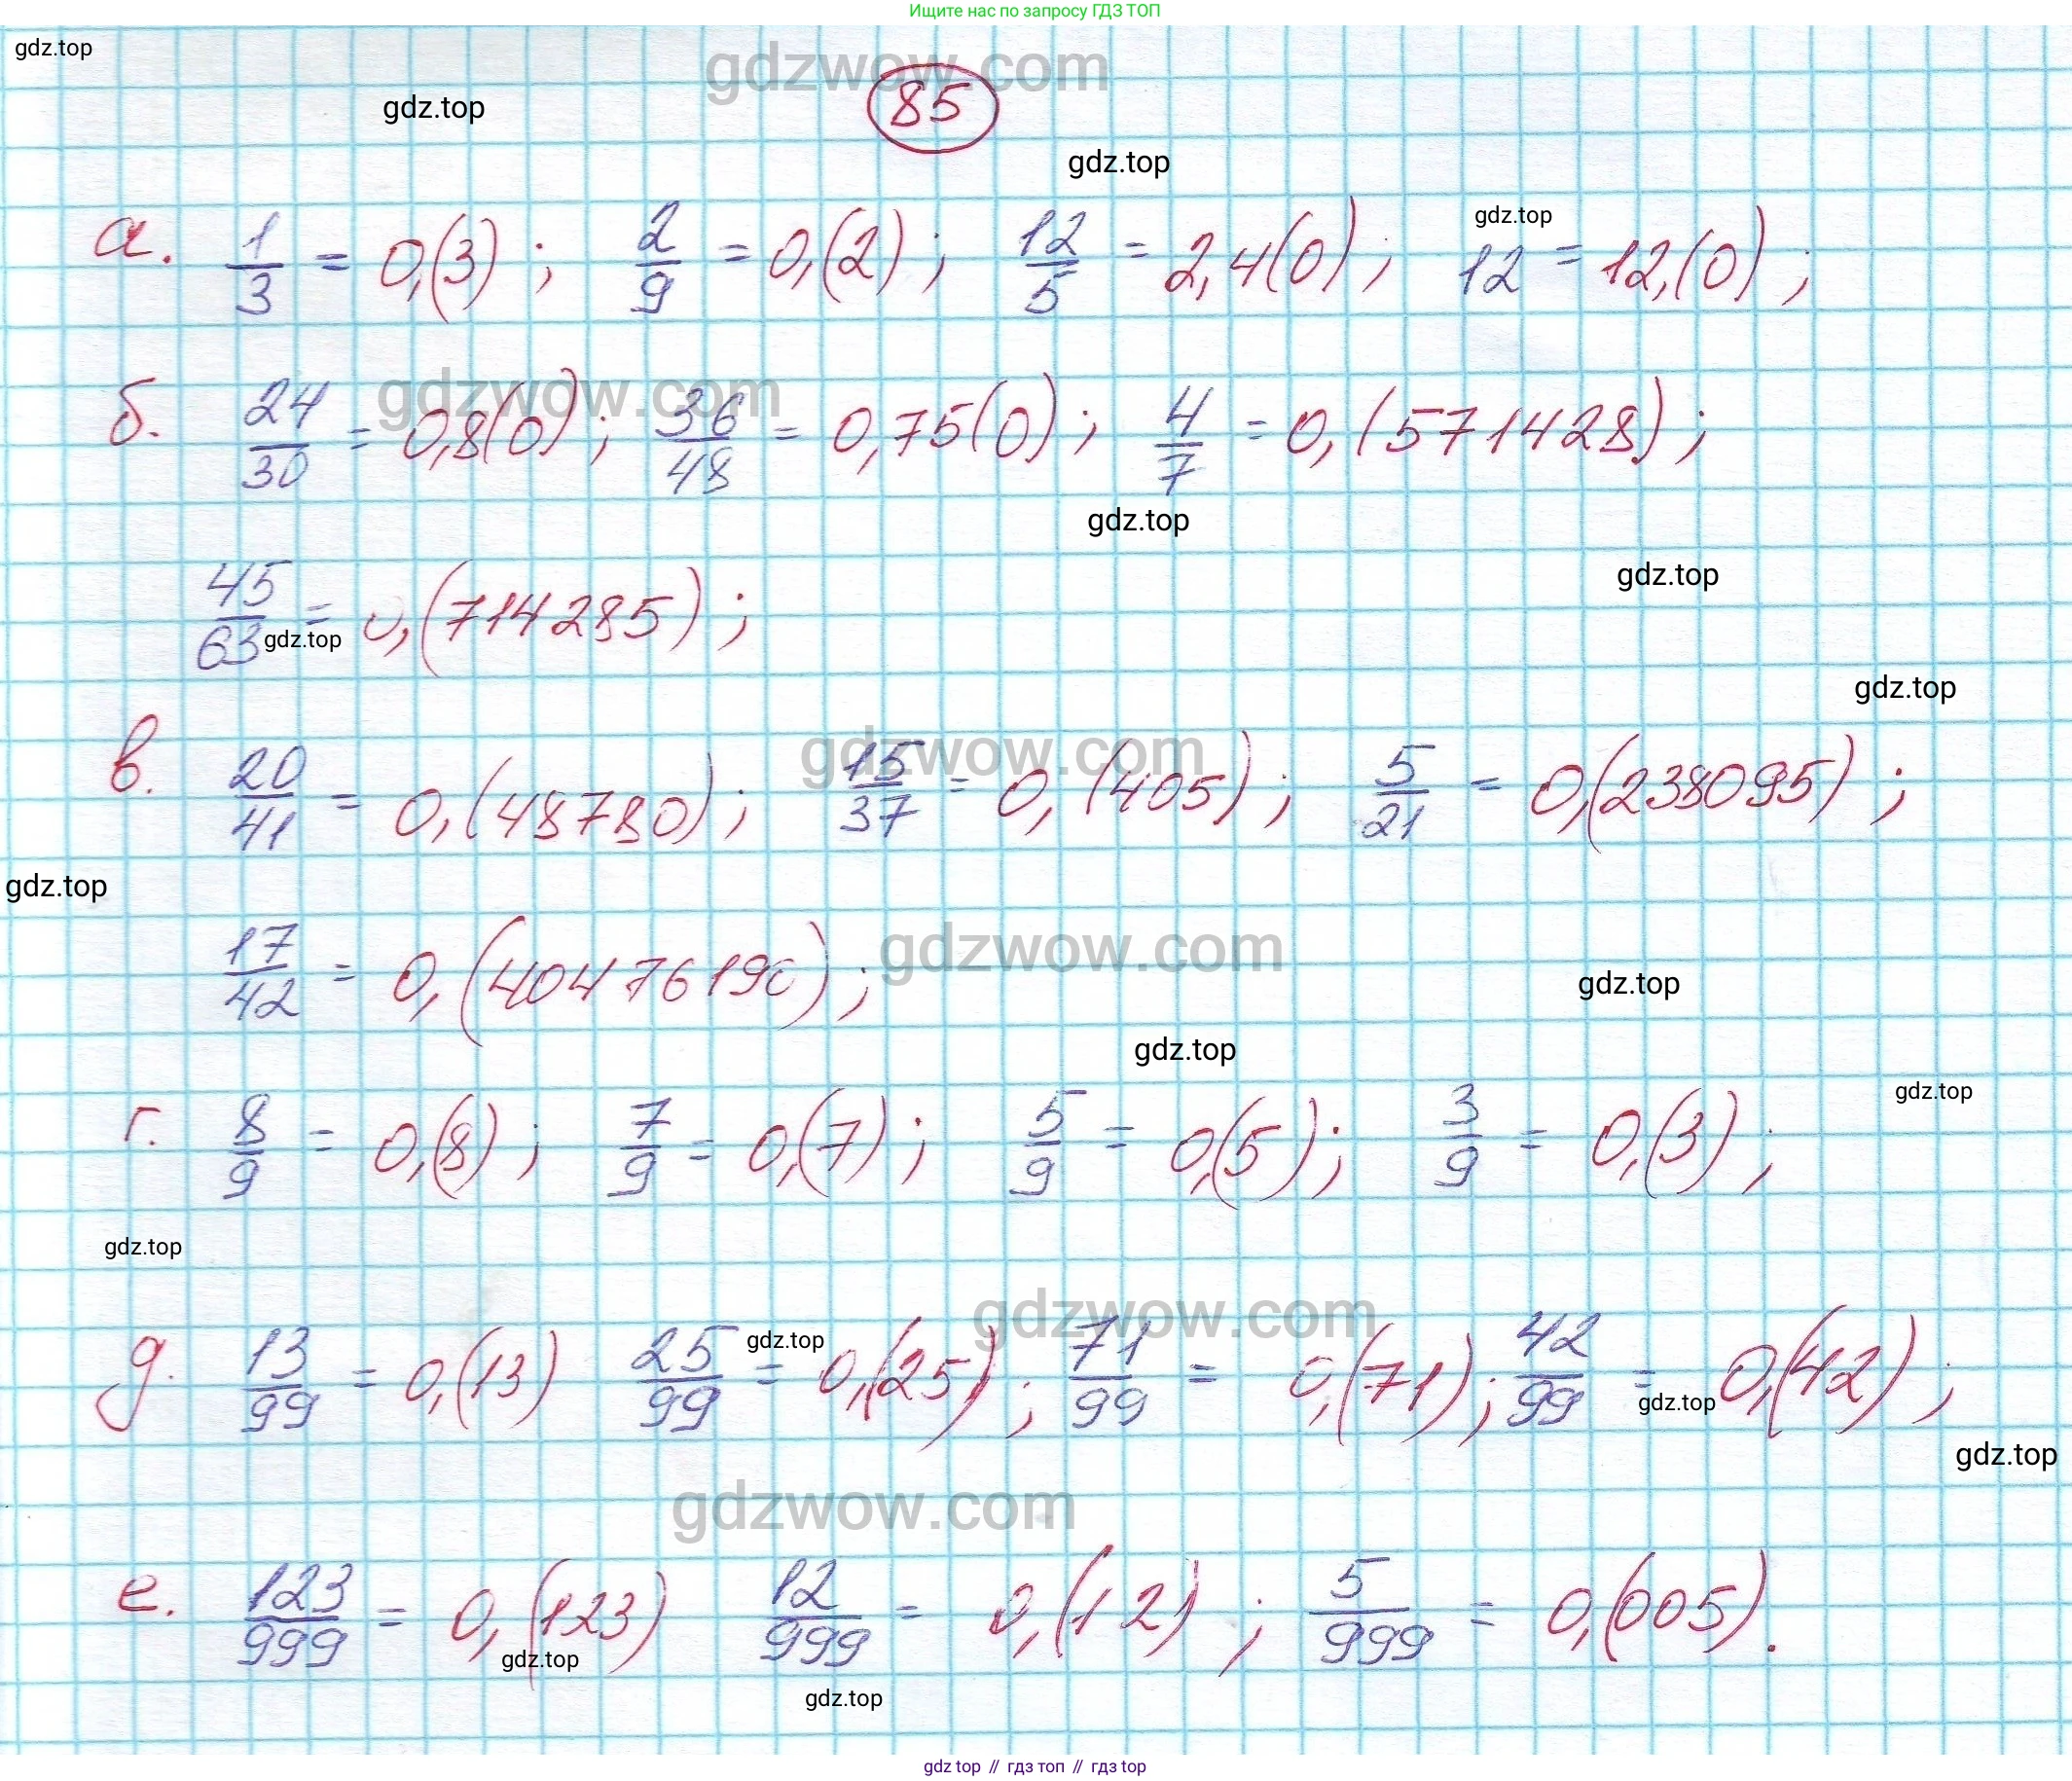 Ищите нас по запросу ГДЗ ТОП
gdz.top
gdzwow.com
gdz.top
85
gdz.top
а. 1/3 = 0,(3); 2/9 = 0,(2); 12/5 = 2,4(0); 12 = 12,(0);
gdz.top
gdzwow.com
б. 24/30 = 0,8(0); 36/48 = 0,75(0); 4/7 = 0,(571428);
gdz.top
gdz.top
45/63 = 0,(714285);
gdz.top
gdz.top
gdzwow.com
в. 20/41 = 0,(48780); 15/37 = 0,(405); 5/21 = 0,(238095);
gdz.top
gdzwow.com
17/42 = 0,(40476190);
gdz.top
gdz.top
gdz.top
г. 8/9 = 0,(8); 7/9 = 0,(7); 5/9 = 0,(5); 3/9 = 0,(3);
gdz.top
gdzwow.com
gdz.top
д. 13/99 = 0,(13) 25/99 = 0,(25); 71/99 = 0,(71); 42/99 = 0,(42);
gdz.top
gdz.top
gdzwow.com
е. 123/999 = 0,(123) 12/999 = 0,(12); 5/999 = 0,(005).
gdz.top
gdz.top
gdz top // гдз топ // гдз top